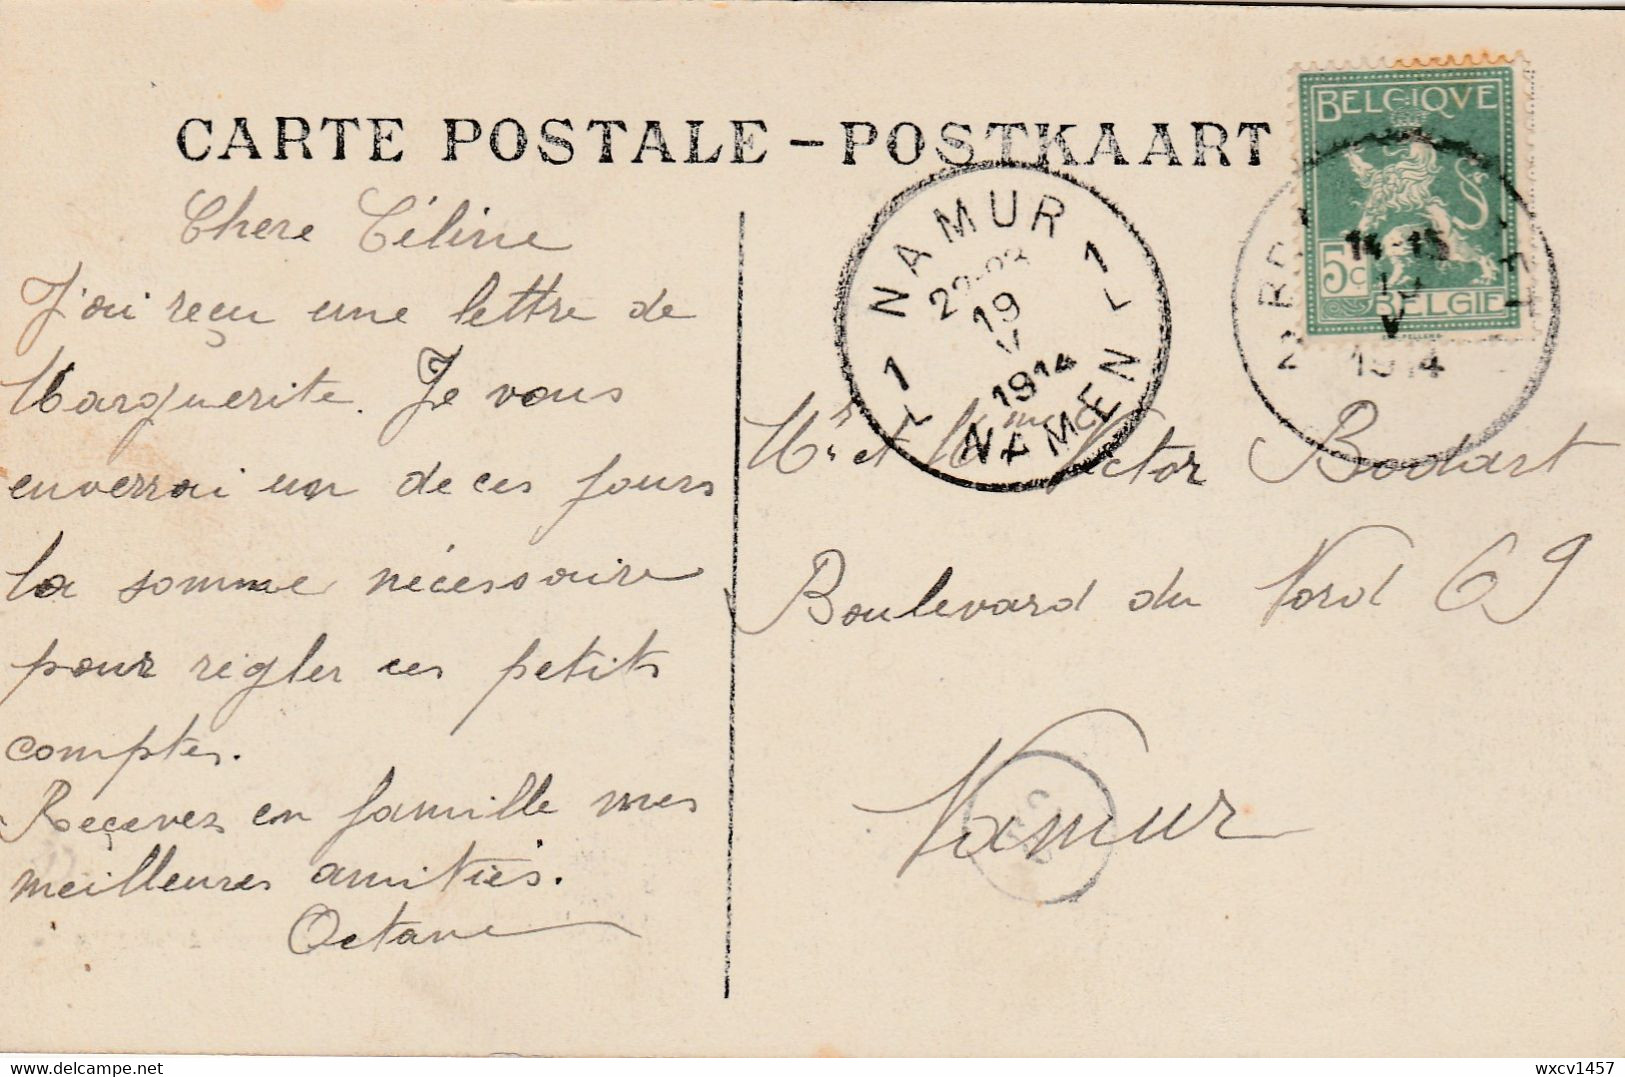 CARTE POSTALE – POSTKAART
BELGIQVE
5c
BELGIE
14-15
V
1914
NAMUR
22-23
19
V
1914
NAMEN
1 L
1 L
Chere Céline
J'ai reçu une lettre de
Marguerite. Je vous
enverrai un de ces jours
la somme nécessaire
pour régler ces petits
comptes.
Reçevez en famille mes
meilleures amitiés.
Octave
Mr. et Mme Victor Bodart
Boulevard du Nord 69
Namur
delcampe.net
wxcv1457